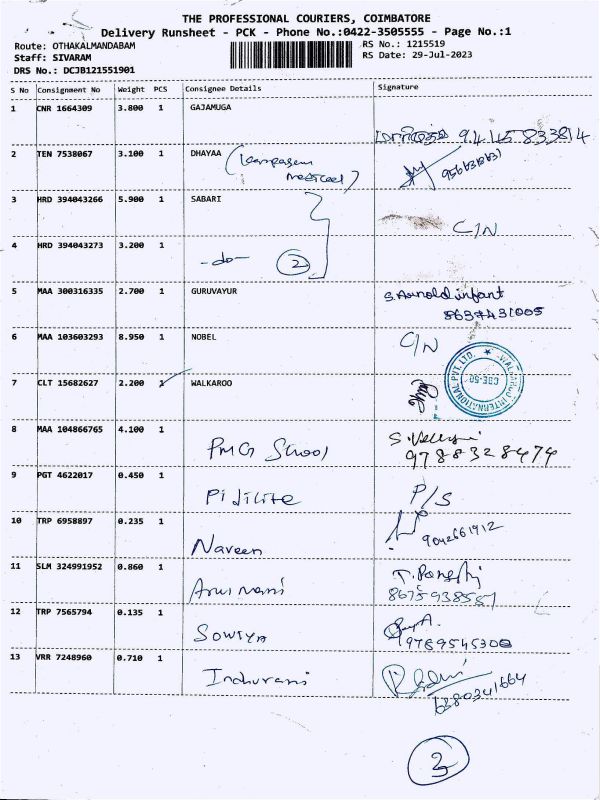 THE PROFESSIONAL COURIERS, COIMBATORE
Delivery Runsheet - PCK - Phone No.:0422-3505555 - Page No.:1
Route: OTHAKALMANDABAM
RS No.: 1215519
Staff: SIVARAM
RS Date: 29-Jul-2023
DRS No.: DCJB121551901
S No Consignment No Weight PCS Consignee Details Signature
1 CNR 1664309 3.800 1 GAJAMUGA
2 TEN 7538067 3.100 1 DHAYAA
medical)
3 HRD 394043266 5.900 1 SABARI
C/N
4 HRD 394043273 3.200 1
-do- 2
5 MAA 300316335 2.700 1 GURUVAYUR
S. Arnold infant
8637431005
6 MAA 103603293 8.950 1 NOBEL C/N
7 CLT 15682627 2.200 1 WALKAROO
8 MAA 104866765 4.100 1
PMG School
9788328474
9 PGT 4622017 0.450 1
Pidilite P/S
10 TRP 6958897 0.235 1
Naveen 9042661912
11 SLM 324991952 0.860 1
8675938587
12 TRP 7565794 0.135 1
Sowiya 9789545308
13 VRR 7248960 0.710 1
Indurani
6380341664
3